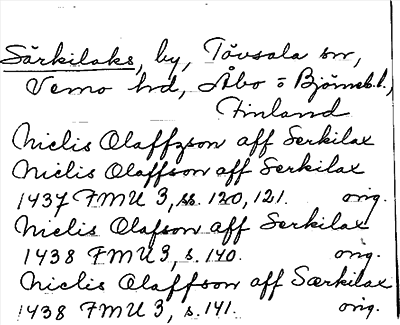 Särkilaks, by, Tövsala sn,
Vemo hd, Åbo o Björneb. l.,
Finland
Nielis Olaffzson aff Serkilax
Nielis Olaffson aff Serkilax
1437 FMU 3, ss. 120, 121. orig.
Nielis Olafson aff Serkilax
1438 FMU 3, s. 140. orig.
Nielis Olaffson aff Særkilax
1438 FMU 3, s. 141. orig.